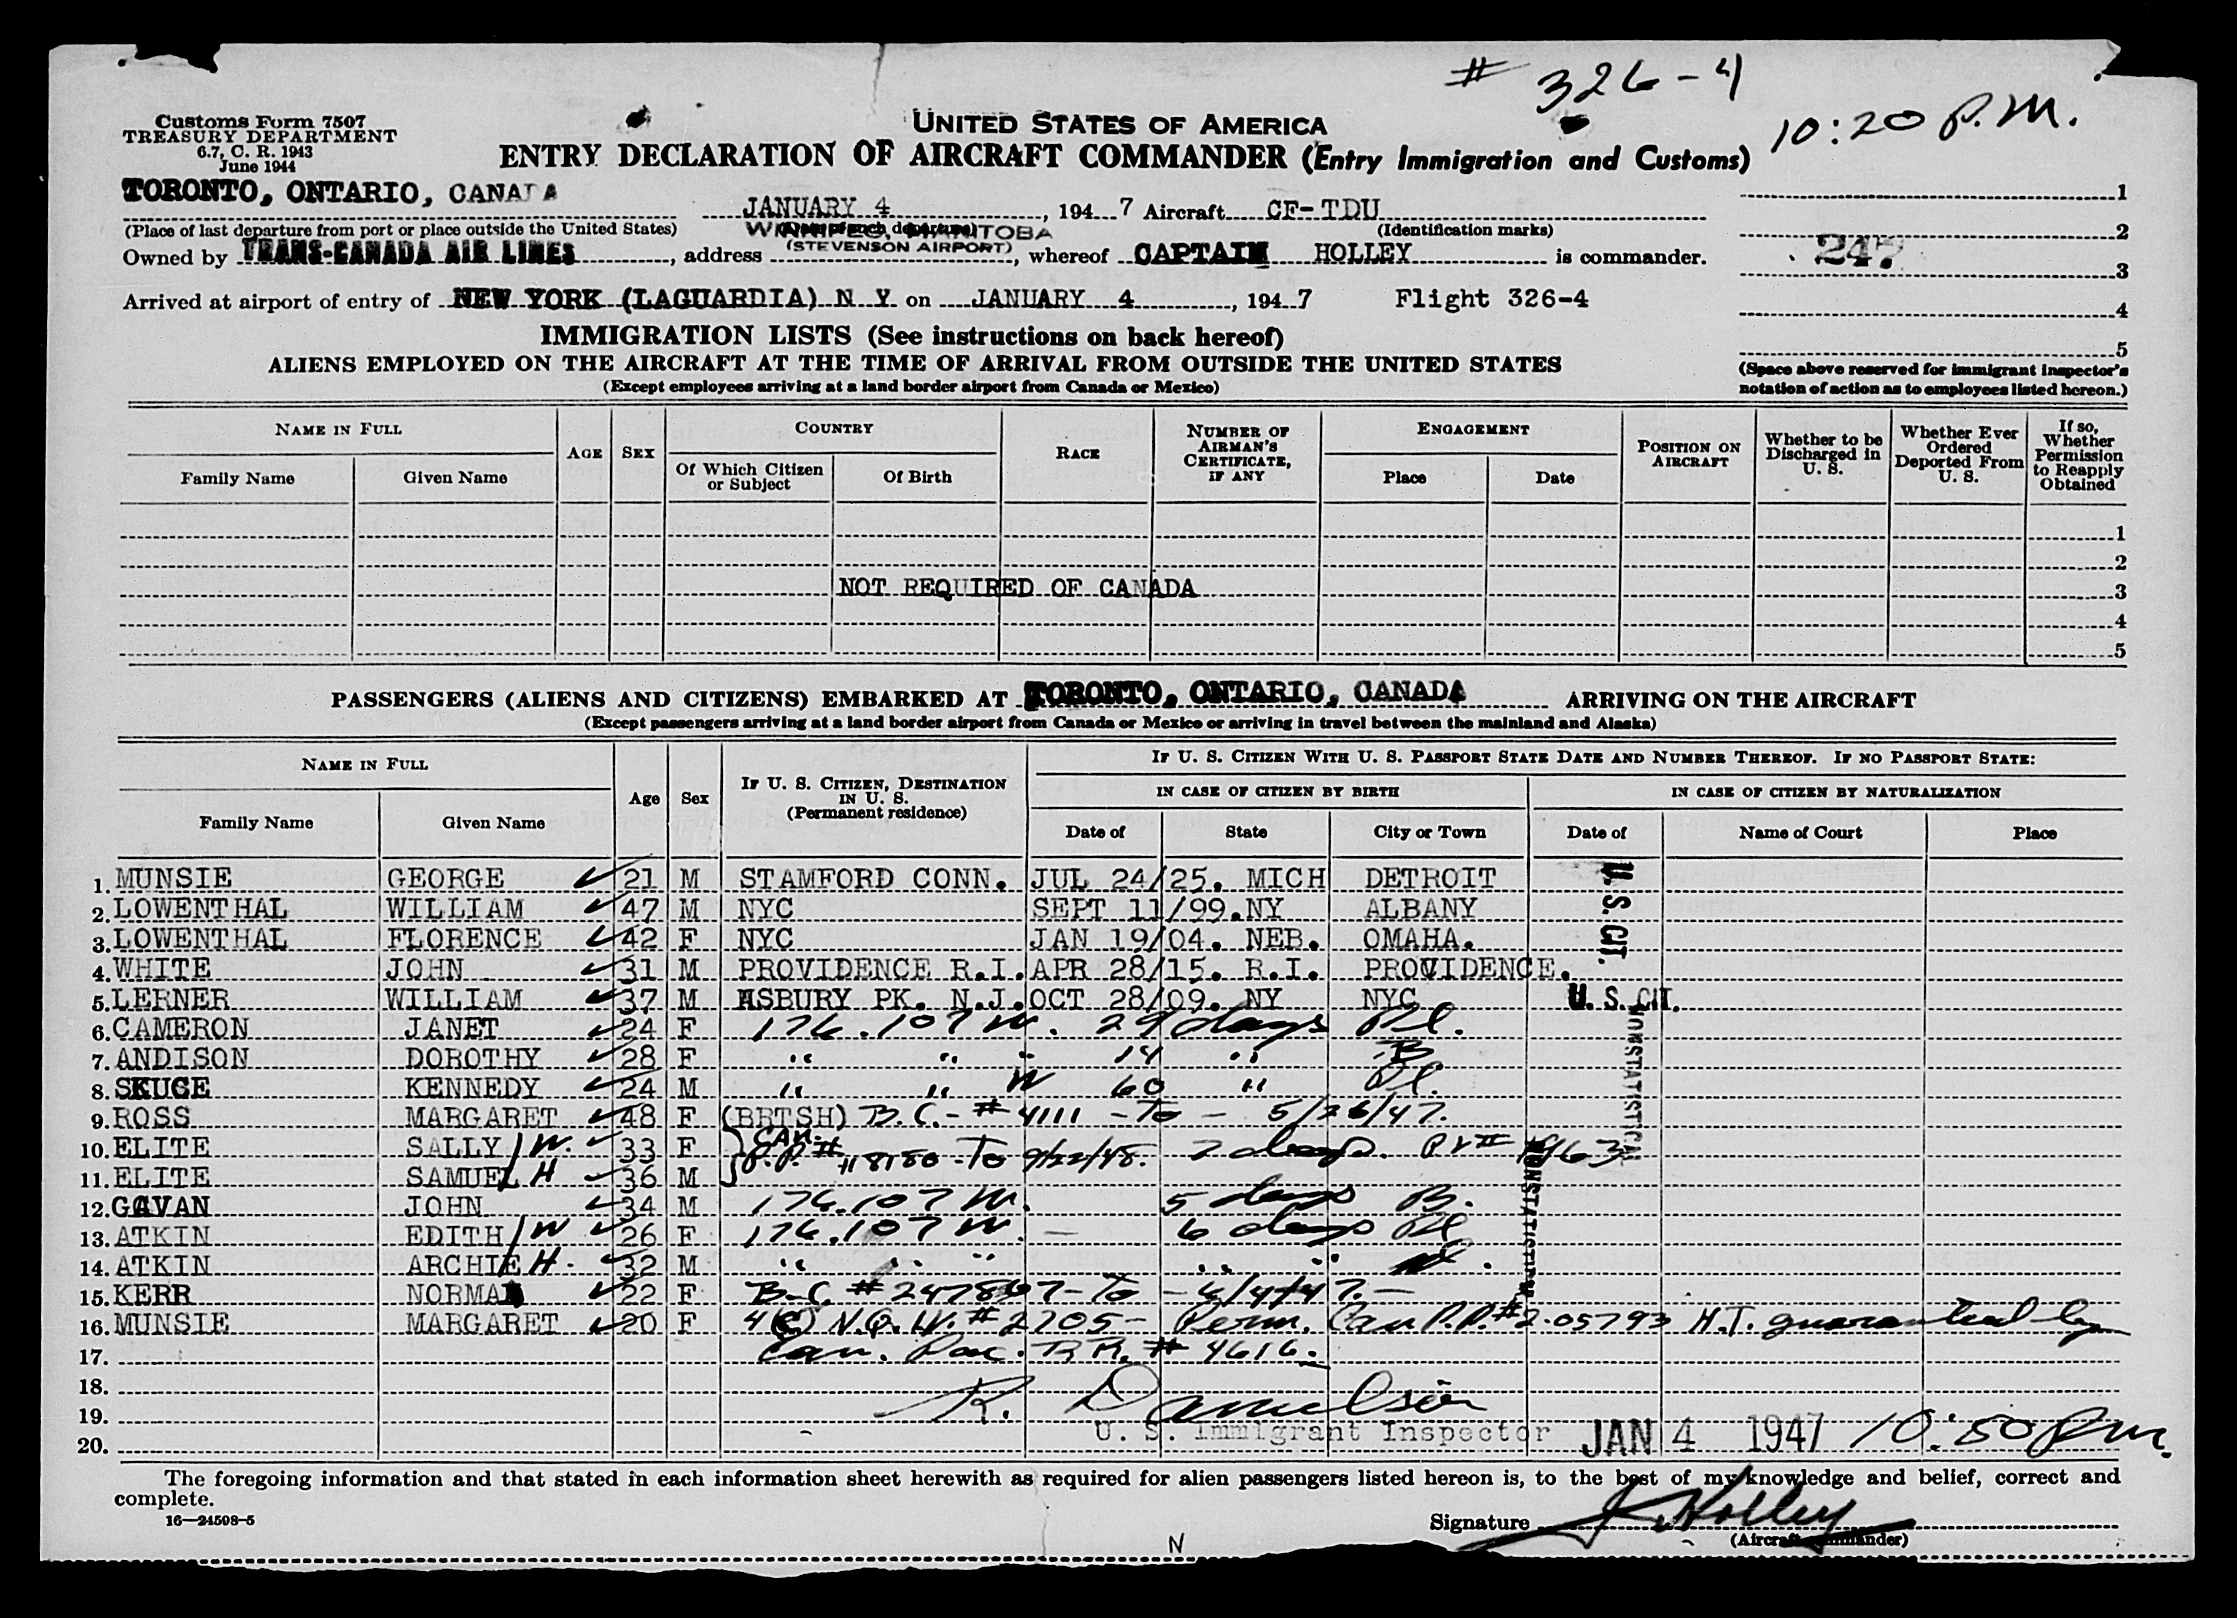 # 326-4
10:20 P.M.
Customs Form 7507
TREASURY DEPARTMENT
6.7, C. R. 1943
June 1944
UNITED STATES OF AMERICA
ENTRY DECLARATION OF AIRCRAFT COMMANDER (Entry Immigration and Customs)
TORONTO, ONTARIO, CANADA JANUARY 4, 1947 Aircraft CF-TDU 1
(Place of last departure from port or place outside the United States) (Date of such departure) (Identification marks) 2
WINNIPEG, MANITOBA
(STEVENSON AIRPORT)
Owned by TRANS-CANADA AIR LINES, address, whereof CAPTAIN HOLLEY is commander. 247 3
Arrived at airport of entry of NEW YORK (LAGUARDIA) N Y on JANUARY 4, 1947 Flight 326-4 4
IMMIGRATION LISTS (See instructions on back hereof) 5
ALIENS EMPLOYED ON THE AIRCRAFT AT THE TIME OF ARRIVAL FROM OUTSIDE THE UNITED STATES
(Except employees arriving at a land border airport from Canada or Mexico)
(Space above reserved for immigrant inspector's notation of action as to employees listed hereon.)
NAME IN FULL
Family Name Given Name
AGE SEX
COUNTRY
Of Which Citizen or Subject Of Birth
RACE
NUMBER OF AIRMAN'S CERTIFICATE, IF ANY
ENGAGEMENT
Place Date
POSITION ON AIRCRAFT
Whether to be Discharged in U. S.
Whether Ever Ordered Deported From U. S.
If so, Whether Permission to Reapply Obtained
1
2
NOT REQUIRED OF CANADA 3
4
5
PASSENGERS (ALIENS AND CITIZENS) EMBARKED AT TORONTO, ONTARIO, CANADA ARRIVING ON THE AIRCRAFT
(Except passengers arriving at a land border airport from Canada or Mexico or arriving in travel between the mainland and Alaska)
NAME IN FULL
Family Name Given Name
Age Sex
IF U. S. CITIZEN, DESTINATION IN U. S. (Permanent residence)
IF U. S. CITIZEN WITH U. S. PASSPORT STATE DATE AND NUMBER THEREOF. IF NO PASSPORT STATE:
IN CASE OF CITIZEN BY BIRTH IN CASE OF CITIZEN BY NATURALIZATION
Date of State City or Town Date of Name of Court Place
1. MUNSIE GEORGE 21 M STAMFORD CONN. JUL 24/25. MICH DETROIT
2. LOWENTHAL WILLIAM 47 M NYC SEPT 11/99. NY ALBANY
3. LOWENTHAL FLORENCE 42 F NYC JAN 19/04. NEB. OMAHA.
4. WHITE JOHN 31 M PROVIDENCE R.I. APR 28/15. R.I. PROVIDENCE.
U.S. CIT.
5. LERNER WILLIAM 37 M ASBURY PK. N.J. OCT 28/09. NY NYC U. S. CIT.
6. CAMERON JANET 24 F 176.107 W. 29 days Pl.
7. ANDISON DOROTHY 28 F " " " 14 " B
8. SKUCE KENNEDY 24 M " " W 60 " Pl.
NONSTATISTICAL
9. ROSS MARGARET 48 F (BRTSH) B.C.-# 4111 - To - 5/26/47.
10. ELITE SALLY/W. 33 F CAN. P.P.# 118180 - To 9/22/48. 2 days.
11. ELITE SAMUEL/H 36 M
12. GAVAN JOHN 34 M 176.107 W. 5 days B.
NONSTATISTICAL
13. ATKIN EDITH/W 26 F 176.107 W. — 6 days Pl
14. ATKIN ARCHIE/H. 32 M " " " " "
15. KERR NORMA 22 F B-C. # 247867 - To - 4/4/47. -
16. MUNSIE MARGARET 20 F 4(C) N.Q.IV. # 2705 - Perm. Can P.P.# 2-05793 H.T. guaranteed by
17. Can. Pac. RR. # 4616.
18.
R. Danielson
19.
U. S. Immigrant Inspector JAN 4 1947 10:50 P.M.
20.
The foregoing information and that stated in each information sheet herewith as required for alien passengers listed hereon is, to the best of my knowledge and belief, correct and
complete.
16—24508-5
Signature J. Holley
(Aircraft Commander)
N